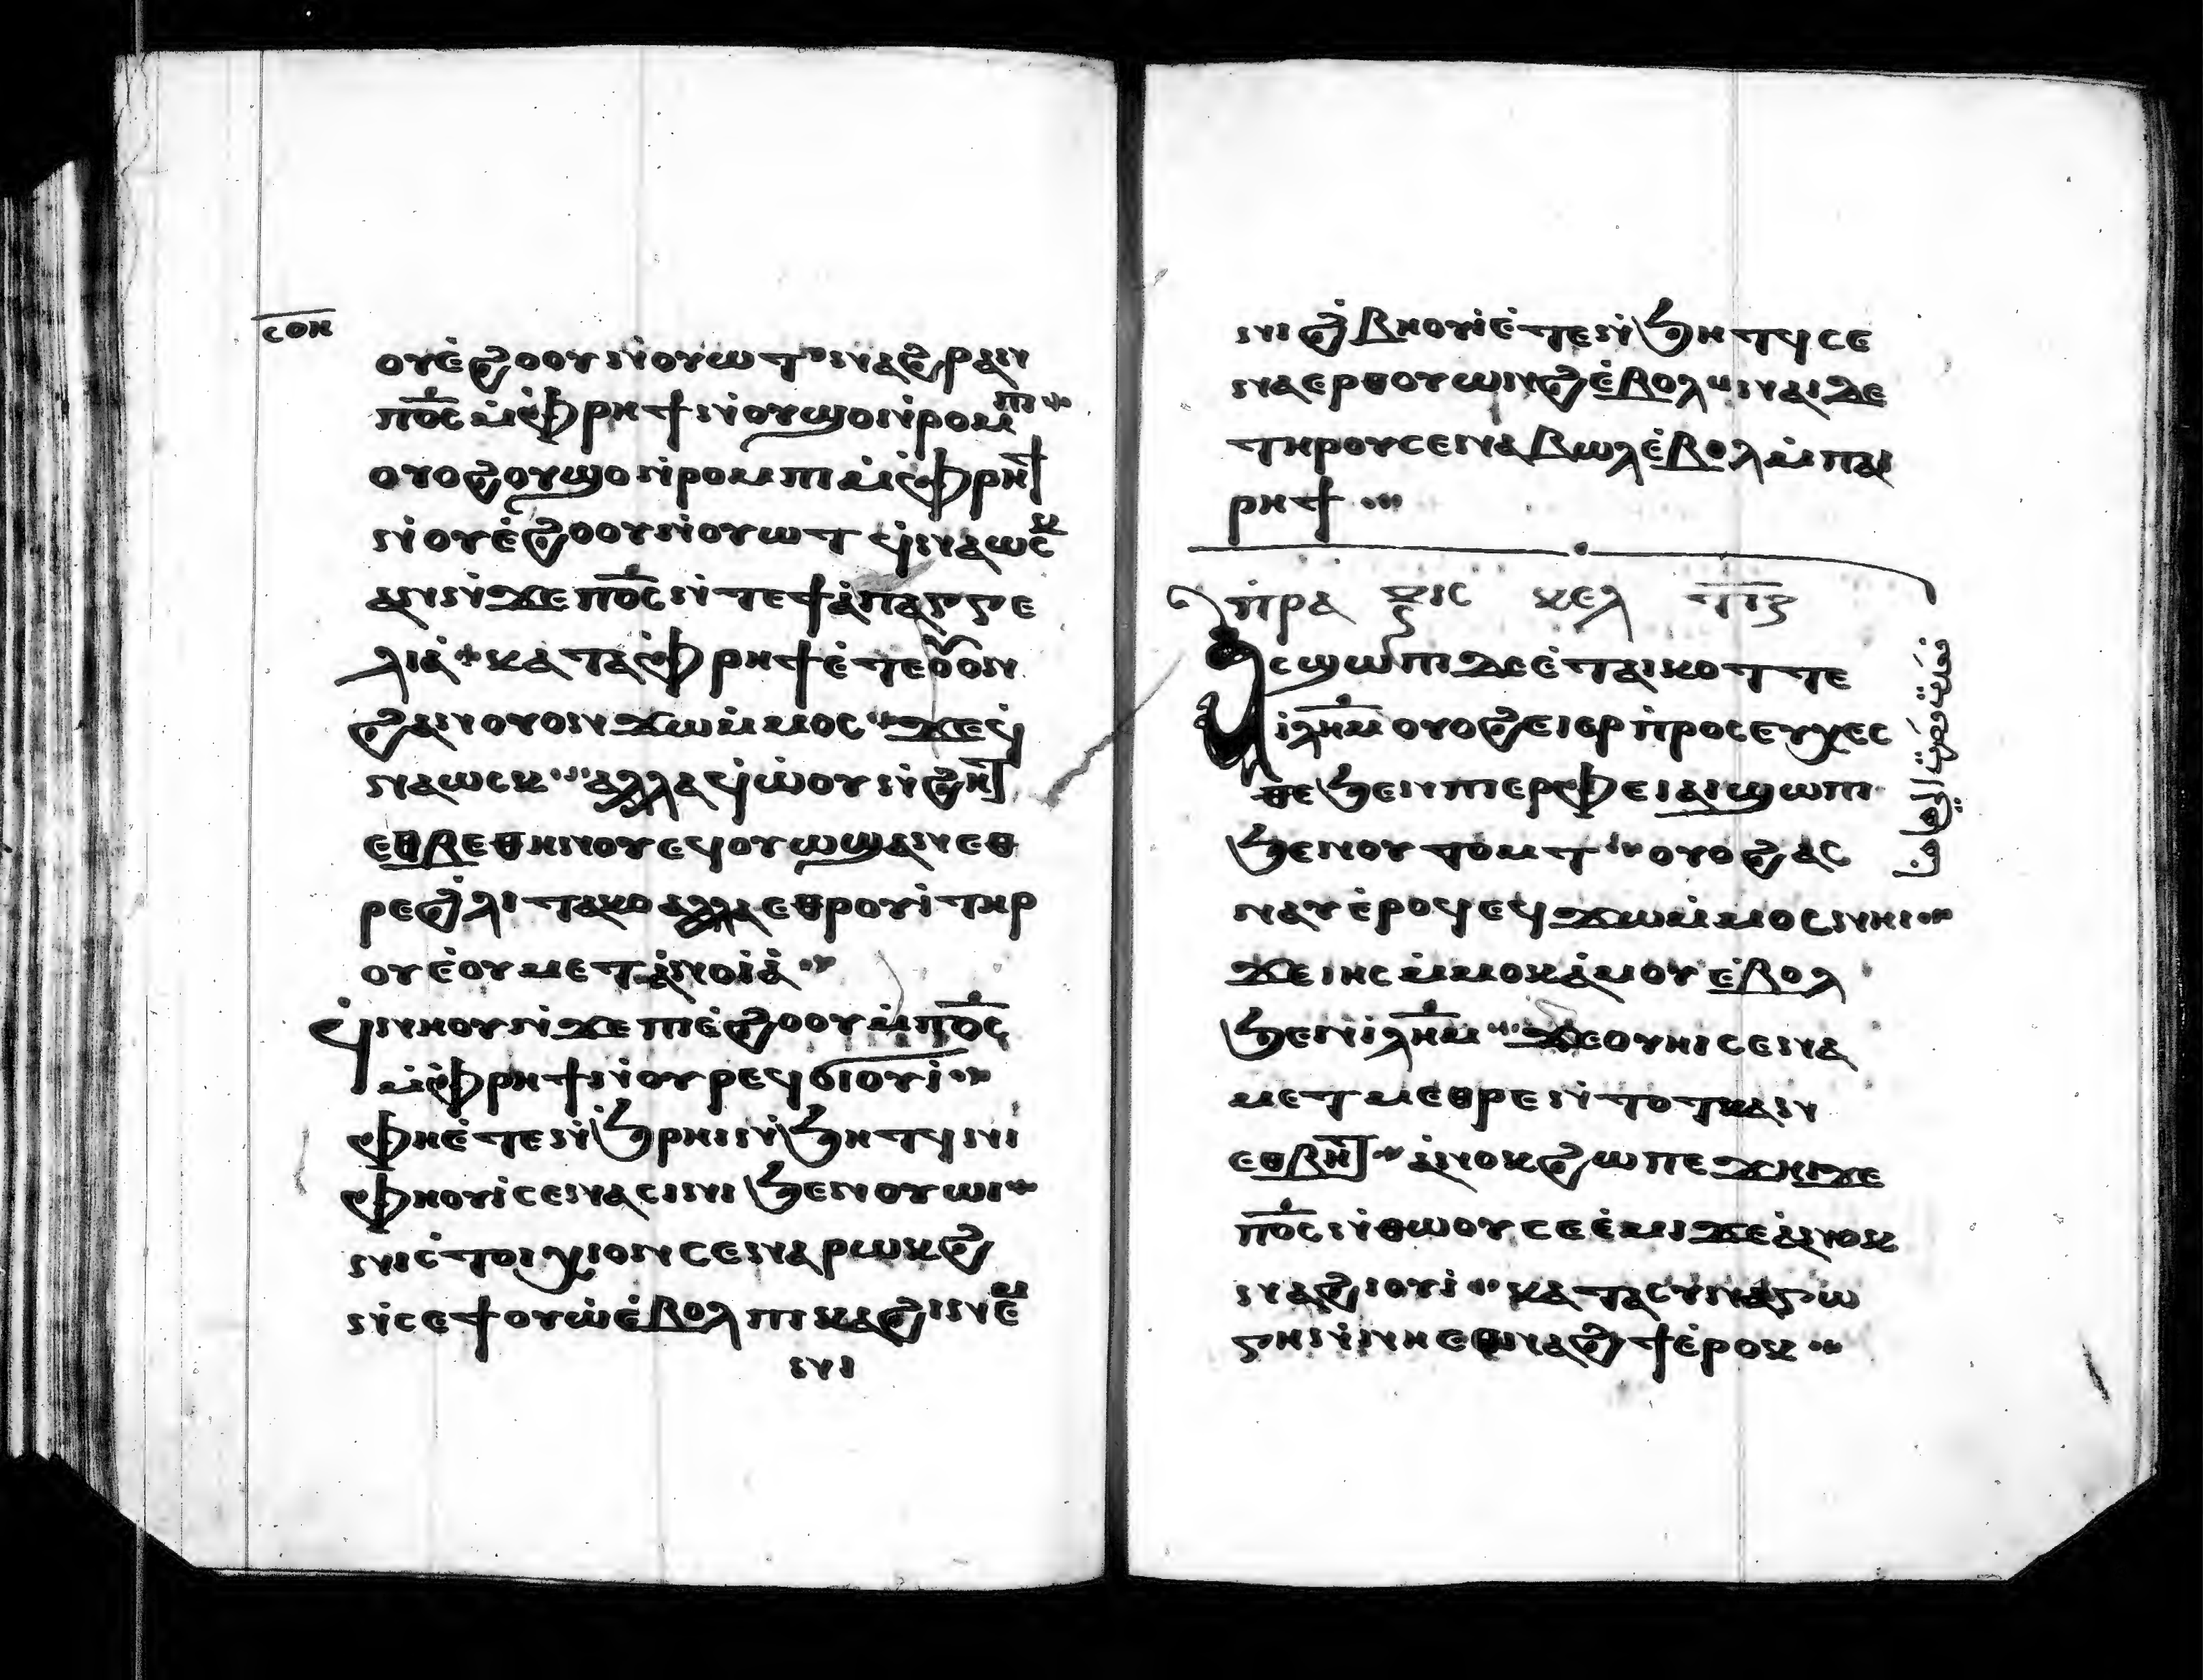 ⲥⲟⲏ
ⲟⲩⲉ̀ϩⲟⲟⲩ ⲛ̀ⲟⲩⲱⲧ ⲛⲁϩⲣⲁⲛ
ⲡ⳪ ⲙ̀ⲫⲣⲏϯ ⲛ̀ⲟⲩϣⲟⲛ̀ⲣⲟⲙⲡⲓ
ⲟⲩⲟϩ ⲟⲩϣⲟⲛ̀ⲣⲟⲙⲡⲓ ⲙ̀ⲫⲣⲏϯ
ⲛ̀ⲟⲩⲉ̀ϩⲟⲟⲩ ⲛ̀ⲟⲩⲱⲧ ϥ̀ⲛⲁⲱⲥⲕ
ⲁⲛ ⲛ̀ϫⲉ ⲡ⳪ ⲛ̀ⲧⲉ ϯⲁ̀ⲡⲁⲅⲅⲉ
ⲗⲓⲁ̀ ⲕⲁⲧⲁ ⲫⲣⲏϯ ⲉ̀ⲧⲉ ⲟⲩⲟⲛ
ϩⲁⲛⲟⲩⲟⲛ ϫⲱ ⲙ̀ⲙⲟⲥ ϫⲉ ϥ̀
ⲛⲁⲱⲥⲕ ⲁⲗⲗⲁ ϥ̀ⲱ̀ⲟⲩ ⲛ̀ϩⲏⲧ
ⲉⲑⲃⲉ ⲑⲏⲛⲟⲩ ⲉϥⲟⲩⲱϣ ⲁⲛ ⲉⲑ
ⲣⲉ ϩⲗⲓ ⲧⲁⲕⲟ ⲁⲗⲗⲁ ⲉⲑⲣⲟⲩⲓ̀ ⲧⲏⲣ
ⲟⲩ ⲉ̀ⲟⲩⲙⲉⲧⲁ̀ⲛⲟⲓⲁ̀
ϥ̀ⲛⲏⲟⲩ ⲛ̀ϫⲉ ⲡⲓⲉ̀ϩⲟⲟⲩ ⲙ̀ⲡ⳪
ⲙ̀ⲫⲣⲏϯ ⲛ̀ⲟⲩⲣⲉϥϭⲓⲟⲩⲓ̀
ⲫⲏⲉ̀ⲧⲉ ⲛ̀ϧⲣⲏⲓ ⲛ̀ϧⲏⲧϥ ⲛⲓ
ⲫⲏⲟⲩⲓ̀ ⲥⲉⲛⲁⲥⲓⲛⲓ ϧⲉⲛ ⲟⲩⲱⲓ
ⲛⲓⲥⲧⲟⲓⲭⲓⲟⲛ ⲥⲉⲛⲁⲣⲱⲕϩ
ⲛ̀ⲥⲉϯⲟⲩⲱ̀ ⲉ̀ⲃⲟⲗ ⲡⲓⲕⲁϩⲓ ⲛⲉⲙ
ⲛⲓ
ⲛⲓϩ̀ⲃⲏⲟⲩⲓ̀ ⲉ̀ⲧⲉ ⲛ̀ϧⲏⲧϥ ⲥⲉ
ⲛⲁⲉⲣⲟⲩⲱⲛϩ ⲉ̀ⲃⲟⲗ ⲛⲁⲓ ⲇⲉ
ⲧⲏⲣⲟⲩ ⲥⲉⲛⲁⲃⲱⲗ ⲉ̀ⲃⲟⲗ ⲙ̀ⲡⲁⲓ
ⲣⲏϯ
ⲡ̀ⲣⲁⲝⲓⲥ ⲕⲉⲗ
ⲁⲥϣⲱⲡⲓ ⲇⲉ ⲉ̀ⲧⲁⲓⲕⲟⲧⲧ ⲉ
ⲓⲗⲏⲙ ⲟⲩⲟϩ ⲉⲓⲉⲣⲡ̀ⲣⲟⲥⲉⲩⲭⲉⲥ
ⲑⲉ ϧⲉⲛ ⲡⲓⲉⲣⲫⲉⲓ ⲁⲓϣⲱⲡⲓ
ϧⲉⲛ ⲟⲩⲧⲟⲙⲧ ⲟⲩⲟϩ ⲁⲥ
ⲛⲁⲩ ⲉ̀ⲣⲟϥ ⲉϥϫⲱ ⲙ̀ⲙⲟⲥ ⲛⲏⲓ
ϫⲉ ⲓⲏⲥ ⲙ̀ⲙⲟⲕ ⲁ̀ⲙⲟⲩ ⲉ̀ⲃⲟⲗ
ϧⲉⲛ ⲓⲗⲏⲙ ϫⲉ ⲟⲩⲏⲓ ⲥⲉⲛⲁ
ⲙⲉⲧⲙⲉⲑⲣⲉ ⲛ̀ⲧⲟⲧⲕ ⲁⲛ
ⲉⲑⲃⲏⲧ ⲁ̀ⲛⲟⲕ ϩⲱ ⲡⲉϫⲏⲓ ϫⲉ
ⲡ⳪ ⲛ̀ⲑⲱⲟⲩ ⲥⲉⲉ̀ⲙⲓ ϫⲉ ⲁ̀ⲛⲟⲕ
ⲛⲁϩⲓⲟⲩⲓ̀ ⲕⲁⲧⲁ ⲥⲩⲛⲁⲅⲱ
ⲅⲏ ⲛ̀ⲛⲏⲉⲑⲛⲁϩϯ ⲉ̀ⲣⲟⲕ